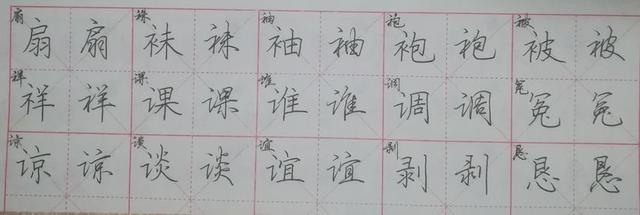 扇 扇 扇 袜 袜 袜 袖 袖 袖 袍 袍 袍 被 被 被
祥 祥 祥 课 课 课 谁 谁 谁 调 调 调 冤 冤 冤
谅 谅 谅 谈 谈 谈 谊 谊 谊 剥 剥 剥 恳 恳 恳